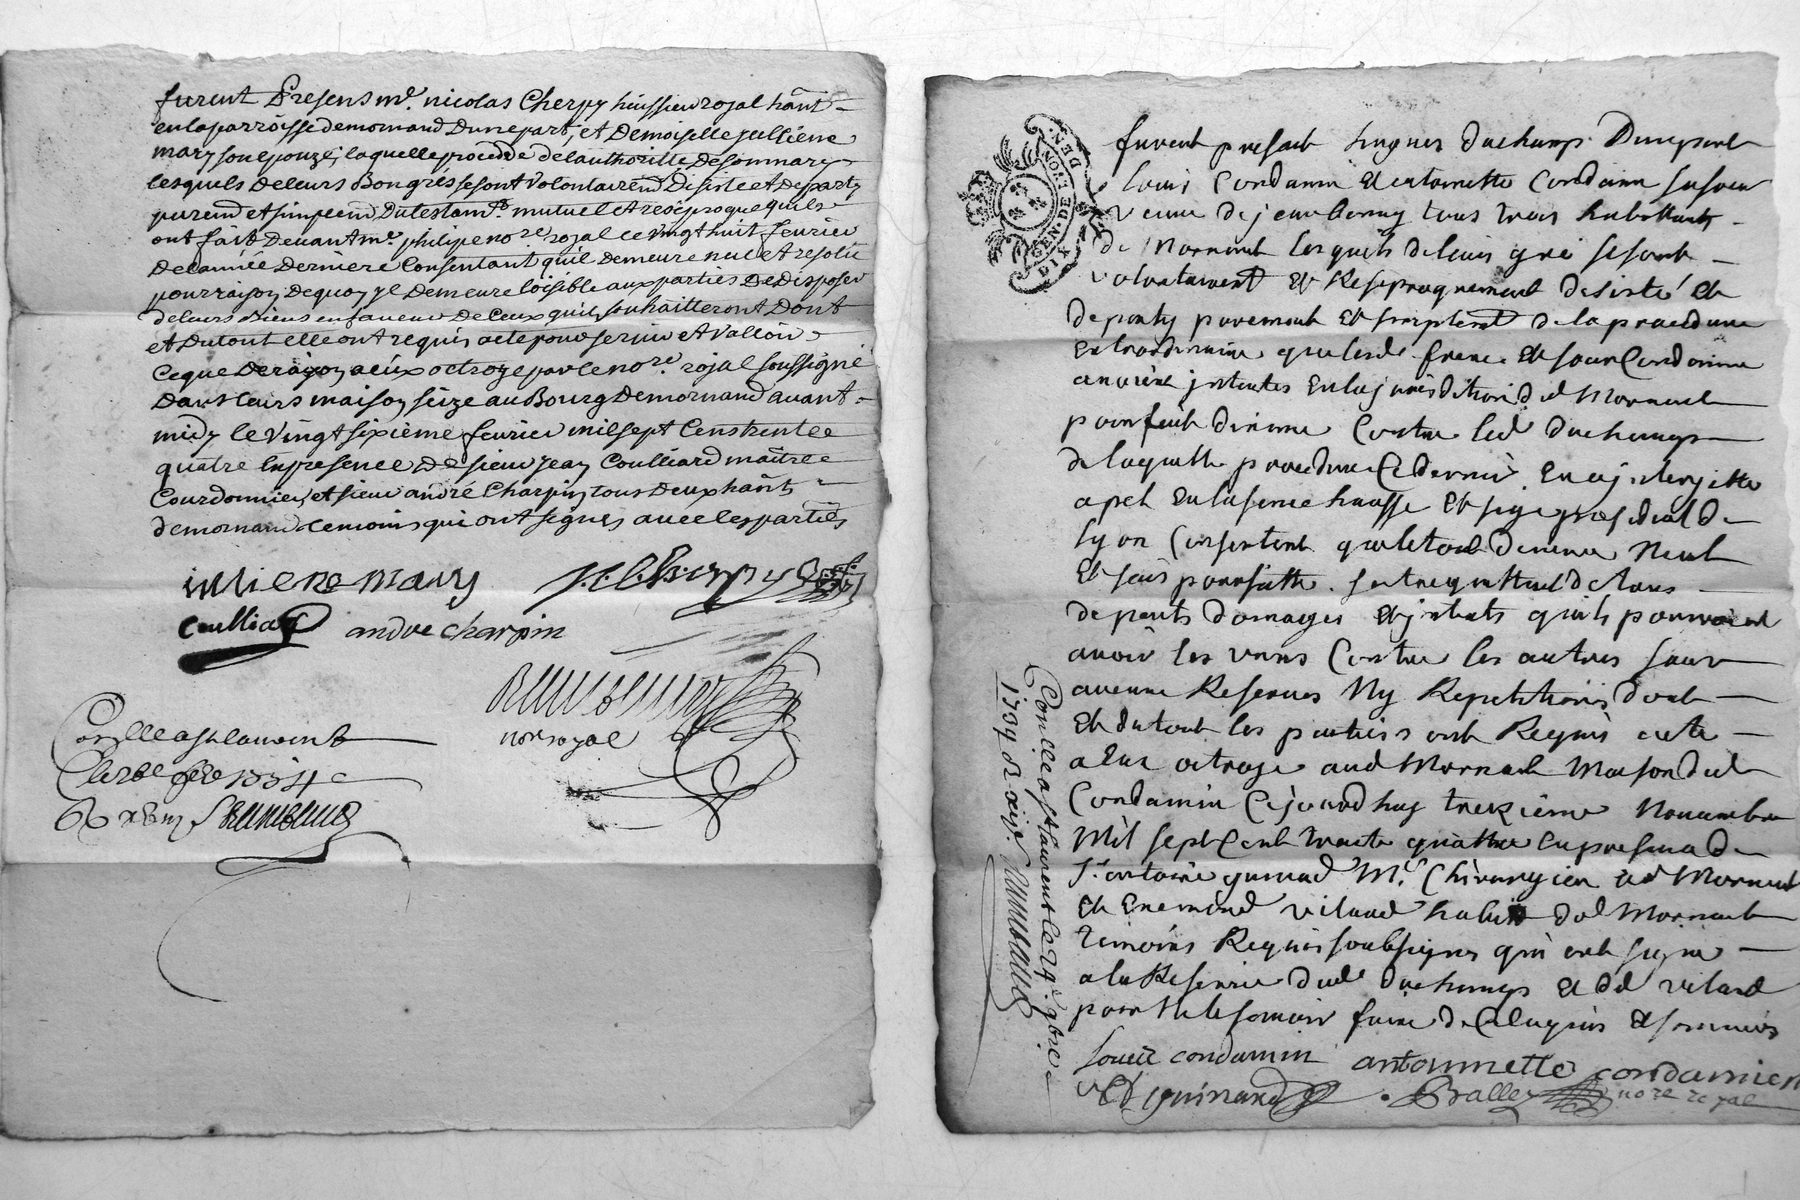 furent Presens mr. nicolas Cherpy huissieur rojal hānt
en la parroisse de mornand Dune part, et Demoiselle Jullienne
mary son epouze, laquelle procedde de lauthoritte de son mary
lesquels de leurs Bon gré se sont volontairemt Desiste et departy
puremt et simplemt Du testamt mutuel et reciproque quils
ont fait Devant me. philipe nore. rojal le vingt huit feuvrier
De lannée Derniere Consentant quil demeure nul et resolu
pour raison De quoy yl Demeure loisible aux parties De Disposer
de leurs Biens en faveur De Ceux quils souhaitteront Dont
et Du tout elle ont requis acte pour servir et valloir
Ce que De raison a eux octroye par le nore. rojal soussigné
Dans leurs maison seize au Bourg De mornand avant
midy le vingt sixieme feuvrier mil sept Cens trente
quatre En presence De sieur Jean Coulliard maître
Courdonnier, et sieur andré Charpin tous Deux hānts
de mornand temoins qui ont signés avec les parties
iulliene mary
Coulliard andre charpin
nore royal
Conlle a st laurent
le 26e fer 1734
furent presant hugues duchamp Dunepart
Louis Condamin Et antoinette Condamin sa soeur
veuve de jean bonny tous trois habittants
de Mornant lesquels de leurs gré se sont
volontairemt Et Resiproquement desisté Et
departy purement Et simplemt de la procedure
Extraordinaire que lesds. frere Et soeur Condamin
avoient jntentés En la jurisdition dud Mornant
pour fait Contre led duchamp
de laquelle procedure Ce dernier
apel En la senechaussé Et siege presidial de
Lyon Consentent que le tout demeure Nul
Et sans poursuitte
depents domages Et jnterets quils pourroient
avoir les uns Contre les autres sans
aucune Reserves Ny Repetitions dont
Et du tout les parties ont Requis acte
a Eux octroye aud Mornant Maison dud
Condamin Cejourdhuy trezieme Novembre
Mil sept Cent trante quattre En presence de
Sr. antoine guinand Mr. Chirurgien ad Mornant
Et Enemond vilard habitt dud Mornant
temoins Requis soubsignes qui ont signe
a la Reserve dud duchamp Et dud vilard
pour Ne le sçavoir faire de Ce Enquis Et sommés
Loueis condamin antoinnette condamien
guinand Brally nore royal
Conlle a st laurent le 24e 9bre
1734